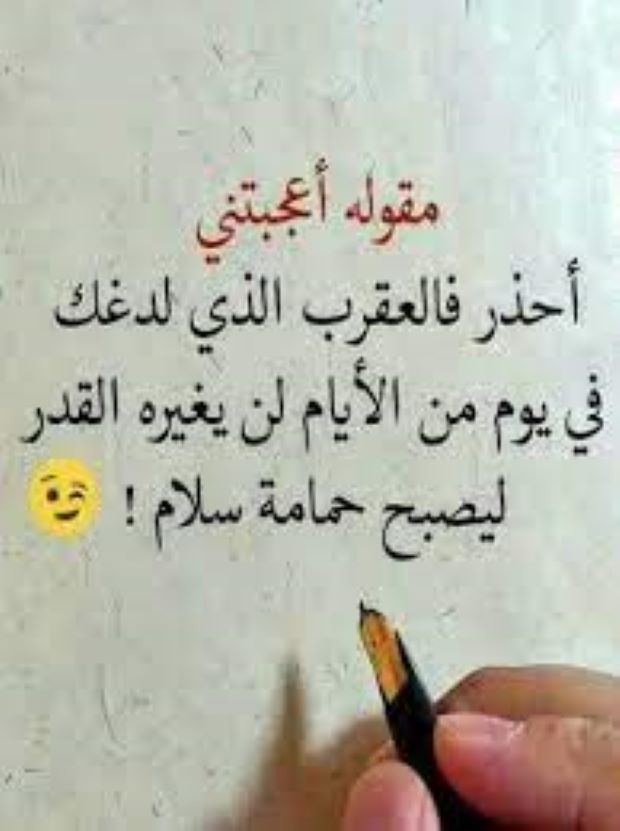 مقوله أعجبتني
أحذر فالعقرب الذي لدغك
في يوم من الأيام لن يغيره القدر
ليصبح حمامة سلام ! 😉